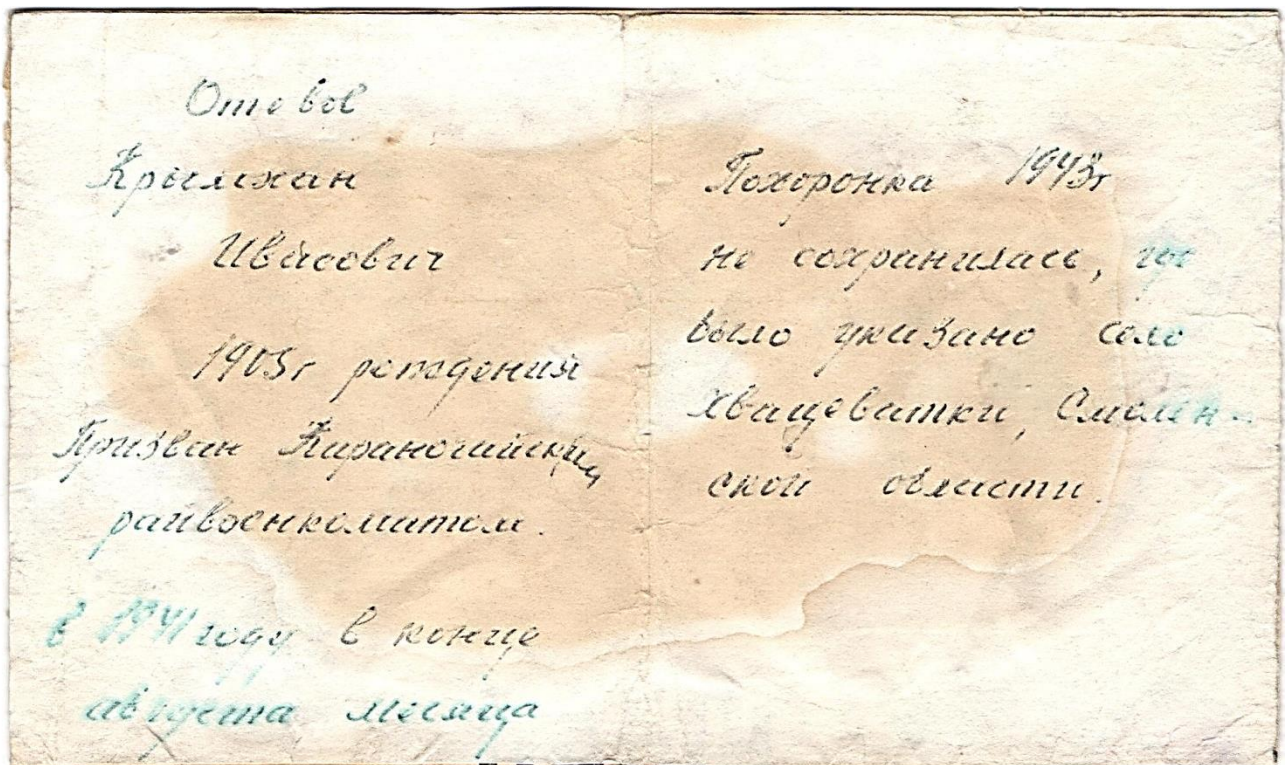 Отевов
Крымхан
Ивасович
1903г рождения
Призван Караногайским
райвоенкоматом.
в 1941 году в конце
августа месяца
Похоронка 1943г
не сохранилась, где
было указано село
Хващеватки, Смолен-
ской области.